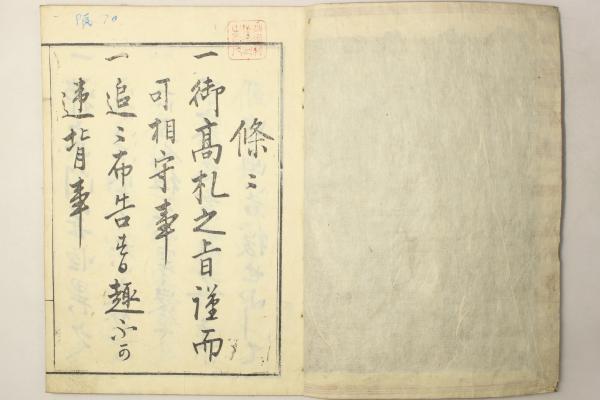 條〻
一御高札之旨謹而
可相守事
一追〻布告書趣不可
違背事